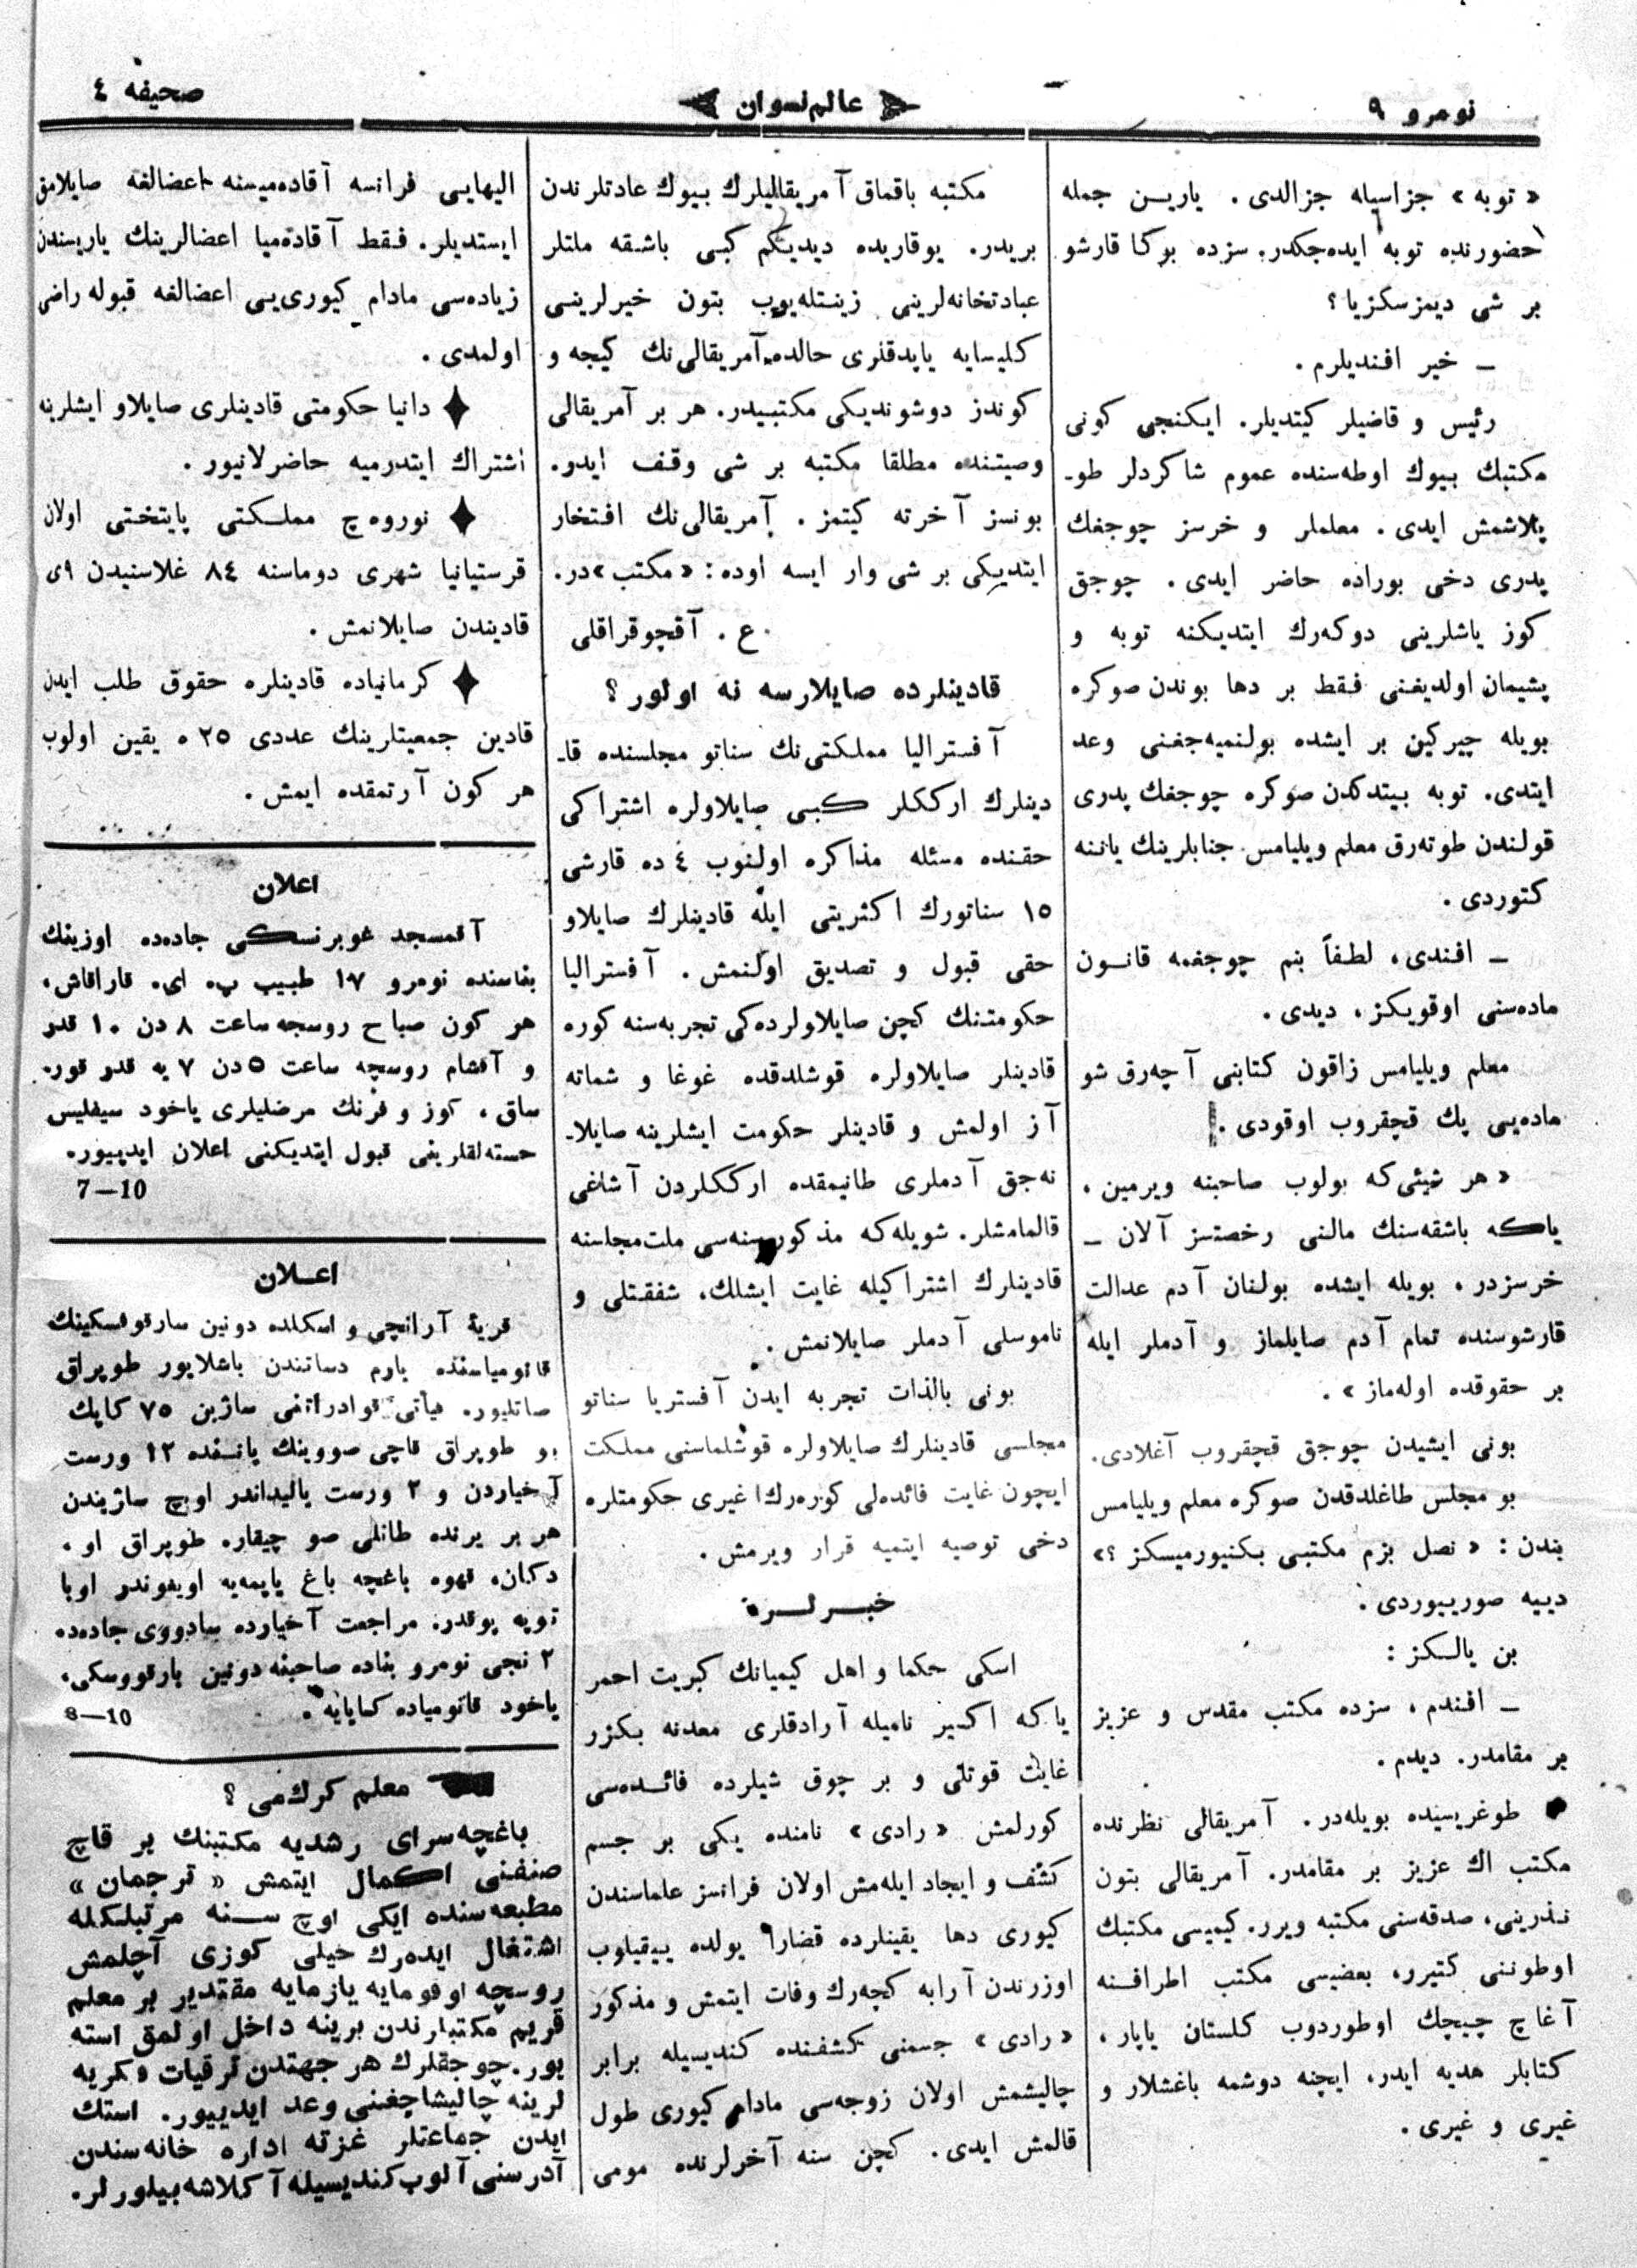 نومرو ٩
عالم نسوان
صحيفه ٤
« توبه » جزاسيله جزالدى . ياريـن جمله
حضورنده توبه ايده‌جكدر. سزده بوكا قارشو
بر شى ديمزسكزيا ؟
ـ خير افنديلرم .
رئيس و قاضيلر كيتديلر. ايكنجى كونى
مكتبك بيوك اوطه‌سنده عموم شاكردلر طو-
پلاشمش ايدى . معلملر و خرسز چوجغك
پدرى دخى بوراده حاضر ايدى . چوجق
كوز ياشلرينى دوكه‌رك ايتديكنه توبه و
پشيمان اولديغنى فقط بر دها بوندن صوكره
بويله چيركين بر ايشده بولنميه‌جغنى وعد
ايتدى. توبه بيتدكدن صوكره چوجغك پدرى
قولندن طوته‌رق معلم ويليامس جنابلرينك ياننه
كتوردى .
ـ افندى، لطفاً بنم چوجغمه قانـون
ماده‌سنى اوقويكز، ديدى .
معلم ويليامس زاقون كتابنى آچه‌رق شو
ماده‌يى پك قچقروب اوقودى .
« هر شيئى كه بولوب صاحبنه ويرمين ،
ياكه باشقه‌سنك مالنى رخصتسز آلان ـ
خرسزدر، بويله ايشده بولنان آدم عدالت
قارشوسنده تمام آدم صايلماز و آدملر ايله
بر حقوقده اوله‌ماز » .
بونى ايشيدن چوجق قچقروب آغلادى.
بو مجلس طاغلدقدن صوكره معلم ويليامس
بندن : « نصل بزم مكتبى بكنيورميسكز ؟»
ديیه صوريیوردى .
بن يالكز :
ـ افندم ، سزده مكتب مقدس و عزيز
بر مقامدر. ديدم .
طوغريسيده بويله‌در. آمريقالى نظرنده
مكتب اك عزيز بر مقامدر. آمريقالى بتون
نذرينى، صدقه‌سنى مكتبه ويرر. كيميسى مكتبك
اوطوننى كتيرر، بعضيسى مكتب اطرافـنه
آغاچ چيچك اوطوردوب كلستان ياپار،
كتابلر هديه ايدر، ايچنه دوشمه باغشلار و
غيرى و غيرى .
مكتبه باقماق آمريقاليلرك بيوك عادتلرندن
بريدر. يوقاريده ديديكم كبى باشقه ملتلر
عبادتخانه‌لرينى زينتله‌يوب بتون خيرلرينى
كليسايه ياپدقلرى حالده آمريقالى‌نك كيجه و
كوندز دوشونديكى مكتبيدر. هر بر آمريقالى
وصيتنده مطلقا مكتبه بر شى وقف ايدو.
بونسز آخرته كيتمز . آمريقالى‌نك افتخار
ايتديكى بر شى وار ايسه اوده : « مكتب »در.
ع . آقچوقراقلى
قادينلرده صايلارسه نه اولور ؟
آفستراليا مملكتى‌نك سناتو مجلسنده قا-
دينلرك ارككلر كبى صايلاولره اشتراكى
حقنده مسئله مذاكره اولنوب ٤ ده قارشى
١٥ سناتورك اكثريتى ايله قادينلرك صايلاو
حقى قبول و تصديق اولنمش . آفستراليا
حكومتنك كچن صايلاولرده‌كى تجربه‌سنه كوره
قادينلر صايلاولره قوشلدقده غوغا و شماته
آز اولمش و قادينلر حكومت ايشلرينه صايلا-
نه‌جق آدملرى طانيمقده ارككلردن آشاغى
قالمامشلر. شويله‌كه مذكور سنه‌سى ملت مجلسنه
قادينلرك اشتراكيله غايت ايشلك، شفقتلى و
ناموسلى آدملر صايلانمش .
بونى بالذات تجربه ايدن آفستريا سناتو
مجلسى قادينلرك صايلاولره قوشلماسنى مملكت
ايچون غايت فائده‌لى كوره‌رك غيرى حكومتلره
دخى توصيه ايتميه قرار ويرمش .
خبـرلـر
اسكى حكما و اهل كيميانك كبريت احمر
ياكه اكسير ناميله آرادقلرى معدنه بكزر
غايت قوتلى و بر چوق شيلرده فائـده‌سى
كورلمش « رادى » نامنده يكى بر جسم
كشف و ايجاد ايله‌مش اولان فرانسز علماسندن
كيورى دها يقينلرده قضارا يولده ييقيلوب
اوزرندن آرابه كچه‌رك وفات ايتمش و مذكور
« رادى » جسمنى كشفنده كنديسيله برابر
چاليشمش اولان زوجه‌سى مادام كيورى طول
قالمش ايدى. كچن سنه آخرلرنده مومى
اليهايى فرانسه آقاده‌ميسنه اعضالغه صايلامق
ايستديلر. فقط آقاده‌ميا اعضالرينك ياريسندن
زياده‌سى مادام كيورى‌يى اعضالغه قبوله راضى
اولمدى .
دانيا حكومتى قادينلرى صايلاو ايشلرينه
اشتراك ايتدرميه حاضرلانيور .
نوروه‌چ مملـكتى پايتختى اولان
قرستيانيا شهرى دوماسنه ٨٤ غلاسنيدن ٩ى
قاديندن صايلانمش .
كرمانياده قادينلره حقوق طلب ايدن
قادين جمعيتلرينك عددى ٢٥ ه يقين اولوب
هر كون آرتمقده ايمش .
اعلان
آقمسجد غوبرنسكى جاده‌ده اوزينك
بناسنده نومرو ١٧ طبيب پ. اى. قاراقاش،
هر كون صباح روسجه ساعت ٨ دن ١٠ قدر
و آقشام روسچه ساعت ٥ دن ٧ يه قدر قور-
ساق ، كوز و فرنك مرضليلرى ياخود سيفليس
حسته‌لقلرينى قبول ايتديكنى اعلان ايدييور.
7—10
اعـلان
قريهٔ آرانچى و اسكلده دونين سارقوفسكينك
قانومياسنده يارم دساتندن باشلايور طوپراق
صاتليور. فيأتى قوادراتنى ساژين ٧٥ كاپك
بو طوپراق قاچى صووينك يانـنده ١٢ ورست
آخياردن و ٢ ورست ياليداندر اوچ ساژيندن
هر بر يرنده طاتلى صو چيقار. طوپراق او ،
دكان، قهوه باغچه باغ ياپمه‌يه اويغوندر اوبا
توپه يوقدر. مراجعت آخيارده سادووى جاده‌ده
٢ نجى نومرو بناده صاحبنه دونين بارقووسكى،
ياخود قانومياده كمايايه .
8—10
معلم كرك‌مى ؟
باغچه‌سراى رشديه مكتبنك بر قاچ
صنفنى اكمال ايتمش « ترجمان »
مطبعه‌سنده ايكى اوچ سـنه مرتبلكله
اشتغال ايده‌رك خيلى كوزى آچلمش
روسچه اوقومايه يازمايه مقتدير بر معلم
قريم مكتبلرندن برينه داخل اولمق استه
يور. چوجقلرك هر جهتدن ترقيات فكريه
لرينه چاليشاجغنى وعد ايدييور. استك
ايدن جماعتلر غزته اداره خانه‌سندن
آدرسنى آلوب كنديسيله آكلاشه بيلورلر.